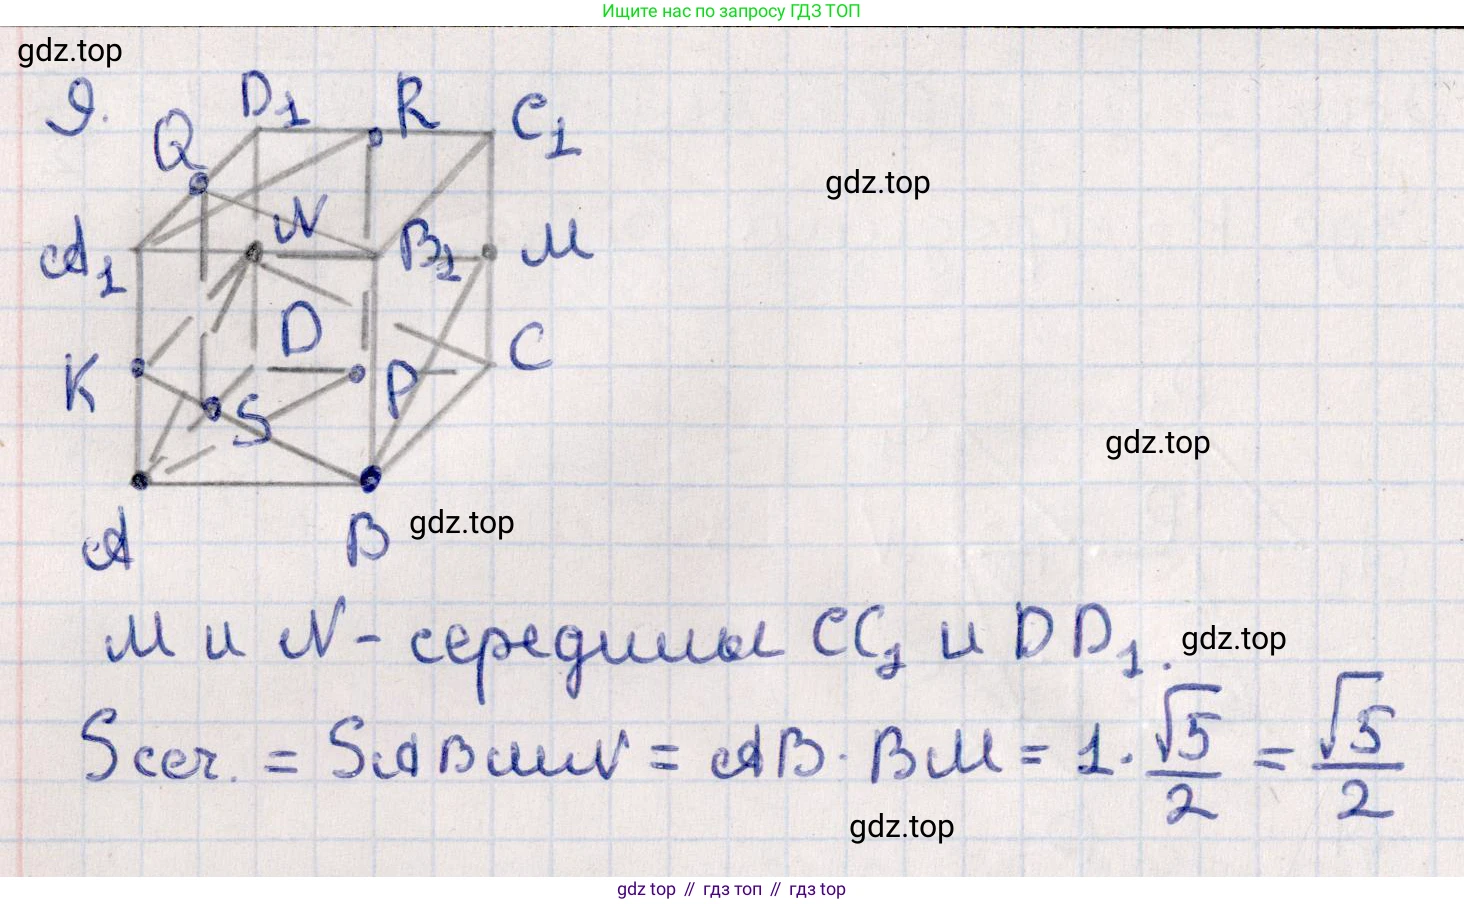 Ищите нас по запросу ГДЗ ТОП
gdz.top
9.
D1
R
C1
Q
gdz.top
A1
N
B1
M
D
K
P
C
S
gdz.top
A
B
gdz.top
M и N - середины CC1 и DD1.
gdz.top
Sсеч. = SABMN = AB · BM = 1 · √5/2 = √5/2
gdz.top
gdz top // гдз топ // гдз top